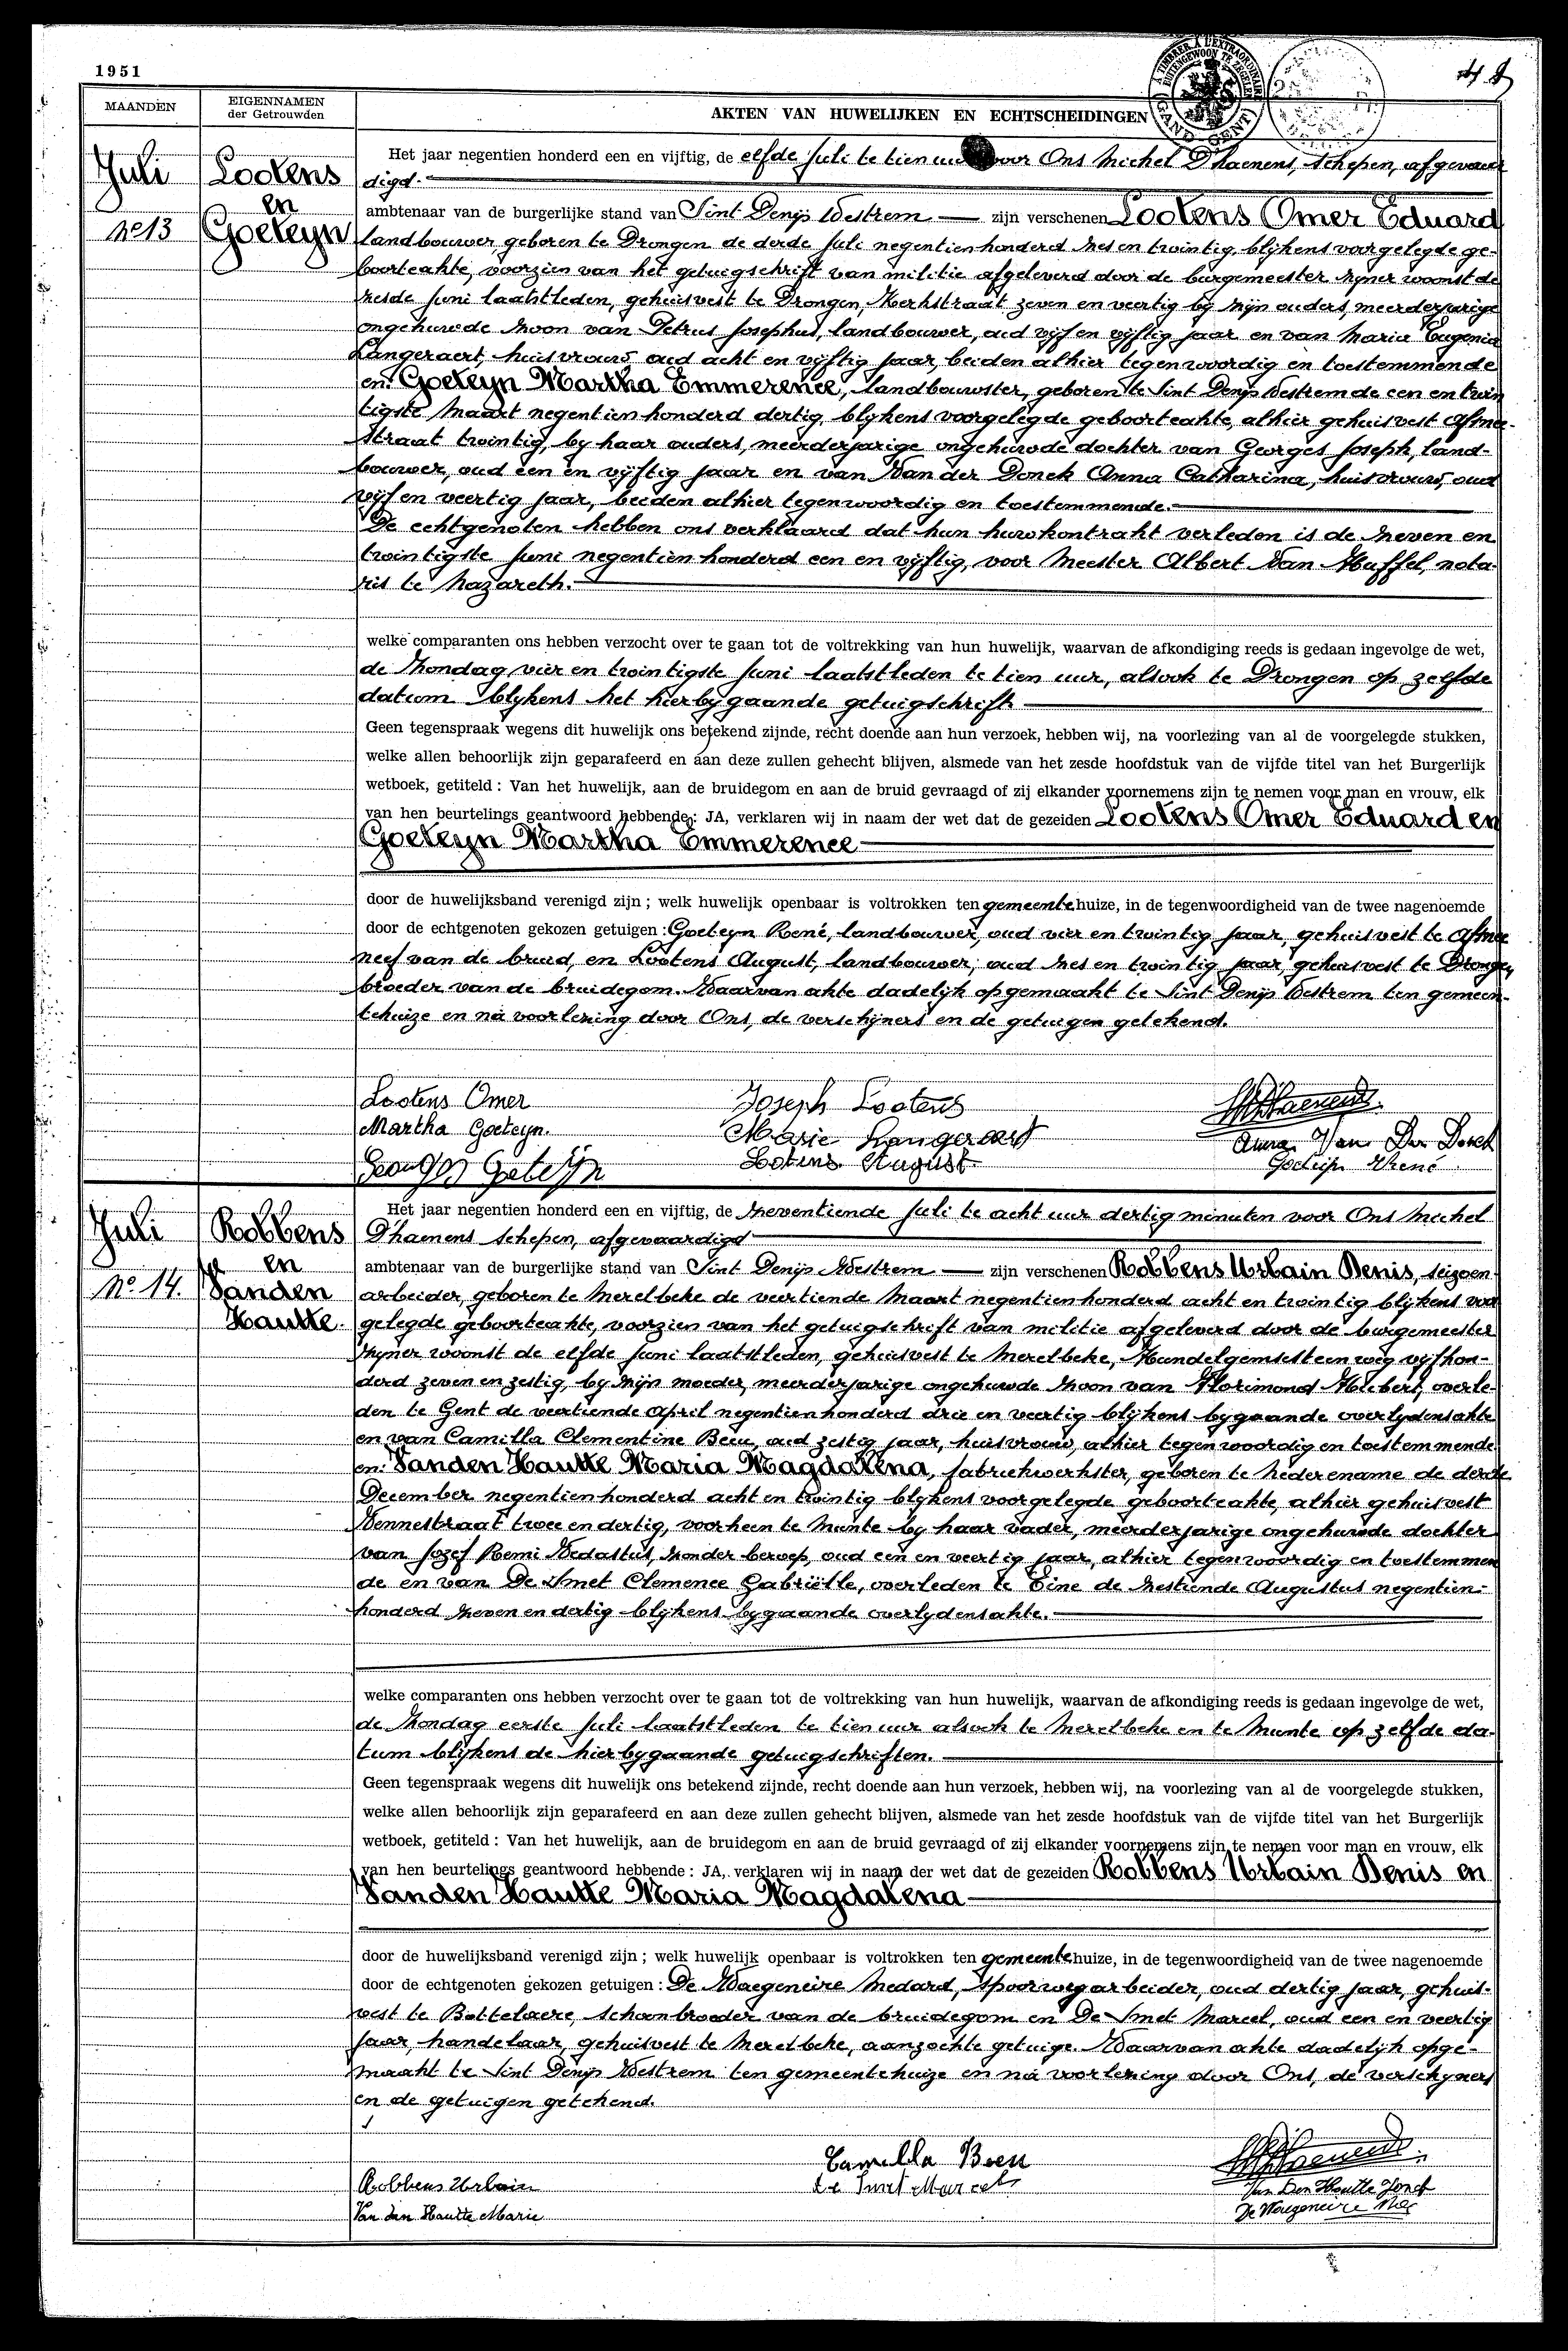 1951
MAANDEN
EIGENNAMEN
der Getrouwden
AKTEN VAN HUWELIJKEN EN ECHTSCHEIDINGEN
A TIMBRER A L'EXTRAORDINAIRE
BUITENGEWOON TE ZEGELEN
GAND GENT
Juli
No 13
Lootens
en
Goeteyn
Het jaar negentien honderd een en vijftig, de elfde Juli te tien uur voor Ons Michel D'haenens, schepen, afgevaar
digd.
ambtenaar van de burgerlijke stand van Sint Denijs Westrem zijn verschenen Lootens Omer Eduard
landbouwer, geboren te Drongen de derde Juli negentienhonderd zes en twintig, blijkens voorgelegde ge-
boorteakte, voorzien van het getuigschrift van militie afgeleverd door de burgemeester zijner woonst de
zesde Juni laatstleden, gehuisvest te Drongen, Kerkstraat zeven en veertig bij zijn ouders, meerderjarige
ongehuwde zoon van Petrus Josephus, landbouwer, oud vijf en vijftig jaar en van Maria Eugenia
Langeraert, huisvrouw, oud acht en vijftig jaar, beiden alhier tegenwoordig en toestemmende
en: Goeteyn Martha Emmerence, landbouwster, geboren te Sint Denijs Westrem de een en twin
tigste Maart negentien honderd dertig, blijkens voorgelegde geboorteakte, alhier gehuisvest Afsnee-
straat twintig, bij haar ouders, meerderjarige ongehuwde dochter van Georges Joseph, land-
bouwer, oud een en vijftig jaar en van Van der Donck Anna Catharina, huisvrouw, oud
vijf en veertig jaar, beiden alhier tegenwoordig en toestemmende.
De echtgenoten hebben ons verklaard dat hun huwkontrakt verleden is de zeven en
twintigste Juni negentien honderd een en vijftig, voor Meester Albert Van Huffel, nota-
ris te Nazareth.
welke comparanten ons hebben verzocht over te gaan tot de voltrekking van hun huwelijk, waarvan de afkondiging reeds is gedaan ingevolge de wet,
de Zondag vier en twintigste Juni laatstleden te tien uur, alsook te Drongen op zelfde
datum blijkens het hierbijgaande getuigschrift
Geen tegenspraak wegens dit huwelijk ons betekend zijnde, recht doende aan hun verzoek, hebben wij, na voorlezing van al de voorgelegde stukken,
welke allen behoorlijk zijn geparafeerd en aan deze zullen gehecht blijven, alsmede van het zesde hoofdstuk van de vijfde titel van het Burgerlijk
wetboek, getiteld : Van het huwelijk, aan de bruidegom en aan de bruid gevraagd of zij elkander voornemens zijn te nemen voor man en vrouw, elk
van hen beurtelings geantwoord hebbende : JA, verklaren wij in naam der wet dat de gezeiden Lootens Omer Eduard en
Goeteyn Martha Emmerence
door de huwelijksband verenigd zijn ; welk huwelijk openbaar is voltrokken ten gemeentehuize, in de tegenwoordigheid van de twee nagenoemde
door de echtgenoten gekozen getuigen : Goeteyn René, landbouwer, oud vier en twintig jaar, gehuisvest te Afsnee
neef van de bruid, en Lootens August, landbouwer, oud zes en twintig jaar, gehuisvest te Drongen,
broeder van de bruidegom. Waarvan akte dadelijk opgemaakt te Sint Denijs Westrem ten gemeen-
tehuize en na voorlezing door Ons, de verschijners en de getuigen getekend.
Lootens Omer
Joseph Lootens
Martha Goeteyn.
Marie Langeraert
Anna Van Der Donck
Georges Goeteyn
Lotens August
Goeteyn René
Juli
No. 14.
Robbens
en
Vanden
Hautte.
Het jaar negentien honderd een en vijftig, de zeventiende Juli te acht uur dertig minuten voor Ons Michel
D'haenens schepen, afgevaardigd
ambtenaar van de burgerlijke stand van Sint Denijs Westrem zijn verschenen Robbens Urbain Denis, seizoen-
arbeider, geboren te Merelbeke de veertiende Maart negentienhonderd acht en twintig blijkens voor
gelegde geboorteakte, voorzien van het getuigschrift van militie afgeleverd door de burgemeester
zijner woonst de elfde Juni laatstleden, gehuisvest te Merelbeke, Hundelgemsesteenweg vijfhon-
derd zeven en zestig, bij zijn moeder, meerderjarige ongehuwde zoon van Florimond Hubert, overle-
den te Gent de veertiende April negentienhonderd drie en veertig blijkens bijgaande overlijdensakte
en van Camilla Clementine Been, oud zestig jaar, huisvrouw, alhier tegenwoordig en toestemmende
en: Vanden Hautte Maria Magdalena, fabriekwerkster, geboren te Nederename de derde
December negentienhonderd acht en twintig blijkens voorgelegde geboorteakte, alhier gehuisvest
Kennestraat twee en dertig, voorheen te Munte bij haar vader, meerderjarige ongehuwde dochter
van Jozef Remi Vedastus, zonder beroep, oud een en veertig jaar, alhier tegenwoordig en toestemmen
de en van De Smet Clemence Gabriëlle, overleden te Eine de zestiende Augustus negentien-
honderd zeven en dertig blijkens bijgaande overlijdensakte.
welke comparanten ons hebben verzocht over te gaan tot de voltrekking van hun huwelijk, waarvan de afkondiging reeds is gedaan ingevolge de wet,
de Zondag eerste Juli laatstleden te tien uur alsook te Merelbeke en te Munte op zelfde da-
tum blijkens de hierbijgaande getuigschriften.
Geen tegenspraak wegens dit huwelijk ons betekend zijnde, recht doende aan hun verzoek, hebben wij, na voorlezing van al de voorgelegde stukken,
welke allen behoorlijk zijn geparafeerd en aan deze zullen gehecht blijven, alsmede van het zesde hoofdstuk van de vijfde titel van het Burgerlijk
wetboek, getiteld : Van het huwelijk, aan de bruidegom en aan de bruid gevraagd of zij elkander voornemens zijn te nemen voor man en vrouw, elk
van hen beurtelings geantwoord hebbende : JA, verklaren wij in naam der wet dat de gezeiden Robbens Urbain Denis en
Vanden Hautte Maria Magdalena
door de huwelijksband verenigd zijn ; welk huwelijk openbaar is voltrokken ten gemeentehuize, in de tegenwoordigheid van de twee nagenoemde
door de echtgenoten gekozen getuigen : De Waegeneire Medard, spoorwegarbeider, oud dertig jaar, gehuis-
vest te Bottelaere, schoonbroeder van de bruidegom en De Smet Marcel, oud een en veertig
jaar, handelaar, gehuisvest te Merelbeke, aanzochte getuige. Waarvan akte dadelijk opge-
maakt te Sint Denijs Westrem ten gemeentehuize en na voorlezing door Ons, de verschijners
en de getuigen getekend.
Camilla Been
Robbens Urbain
De Smet Marcel
Van Den Hautte Jozef
Van den Hautte Marie
De Waegeneire Med